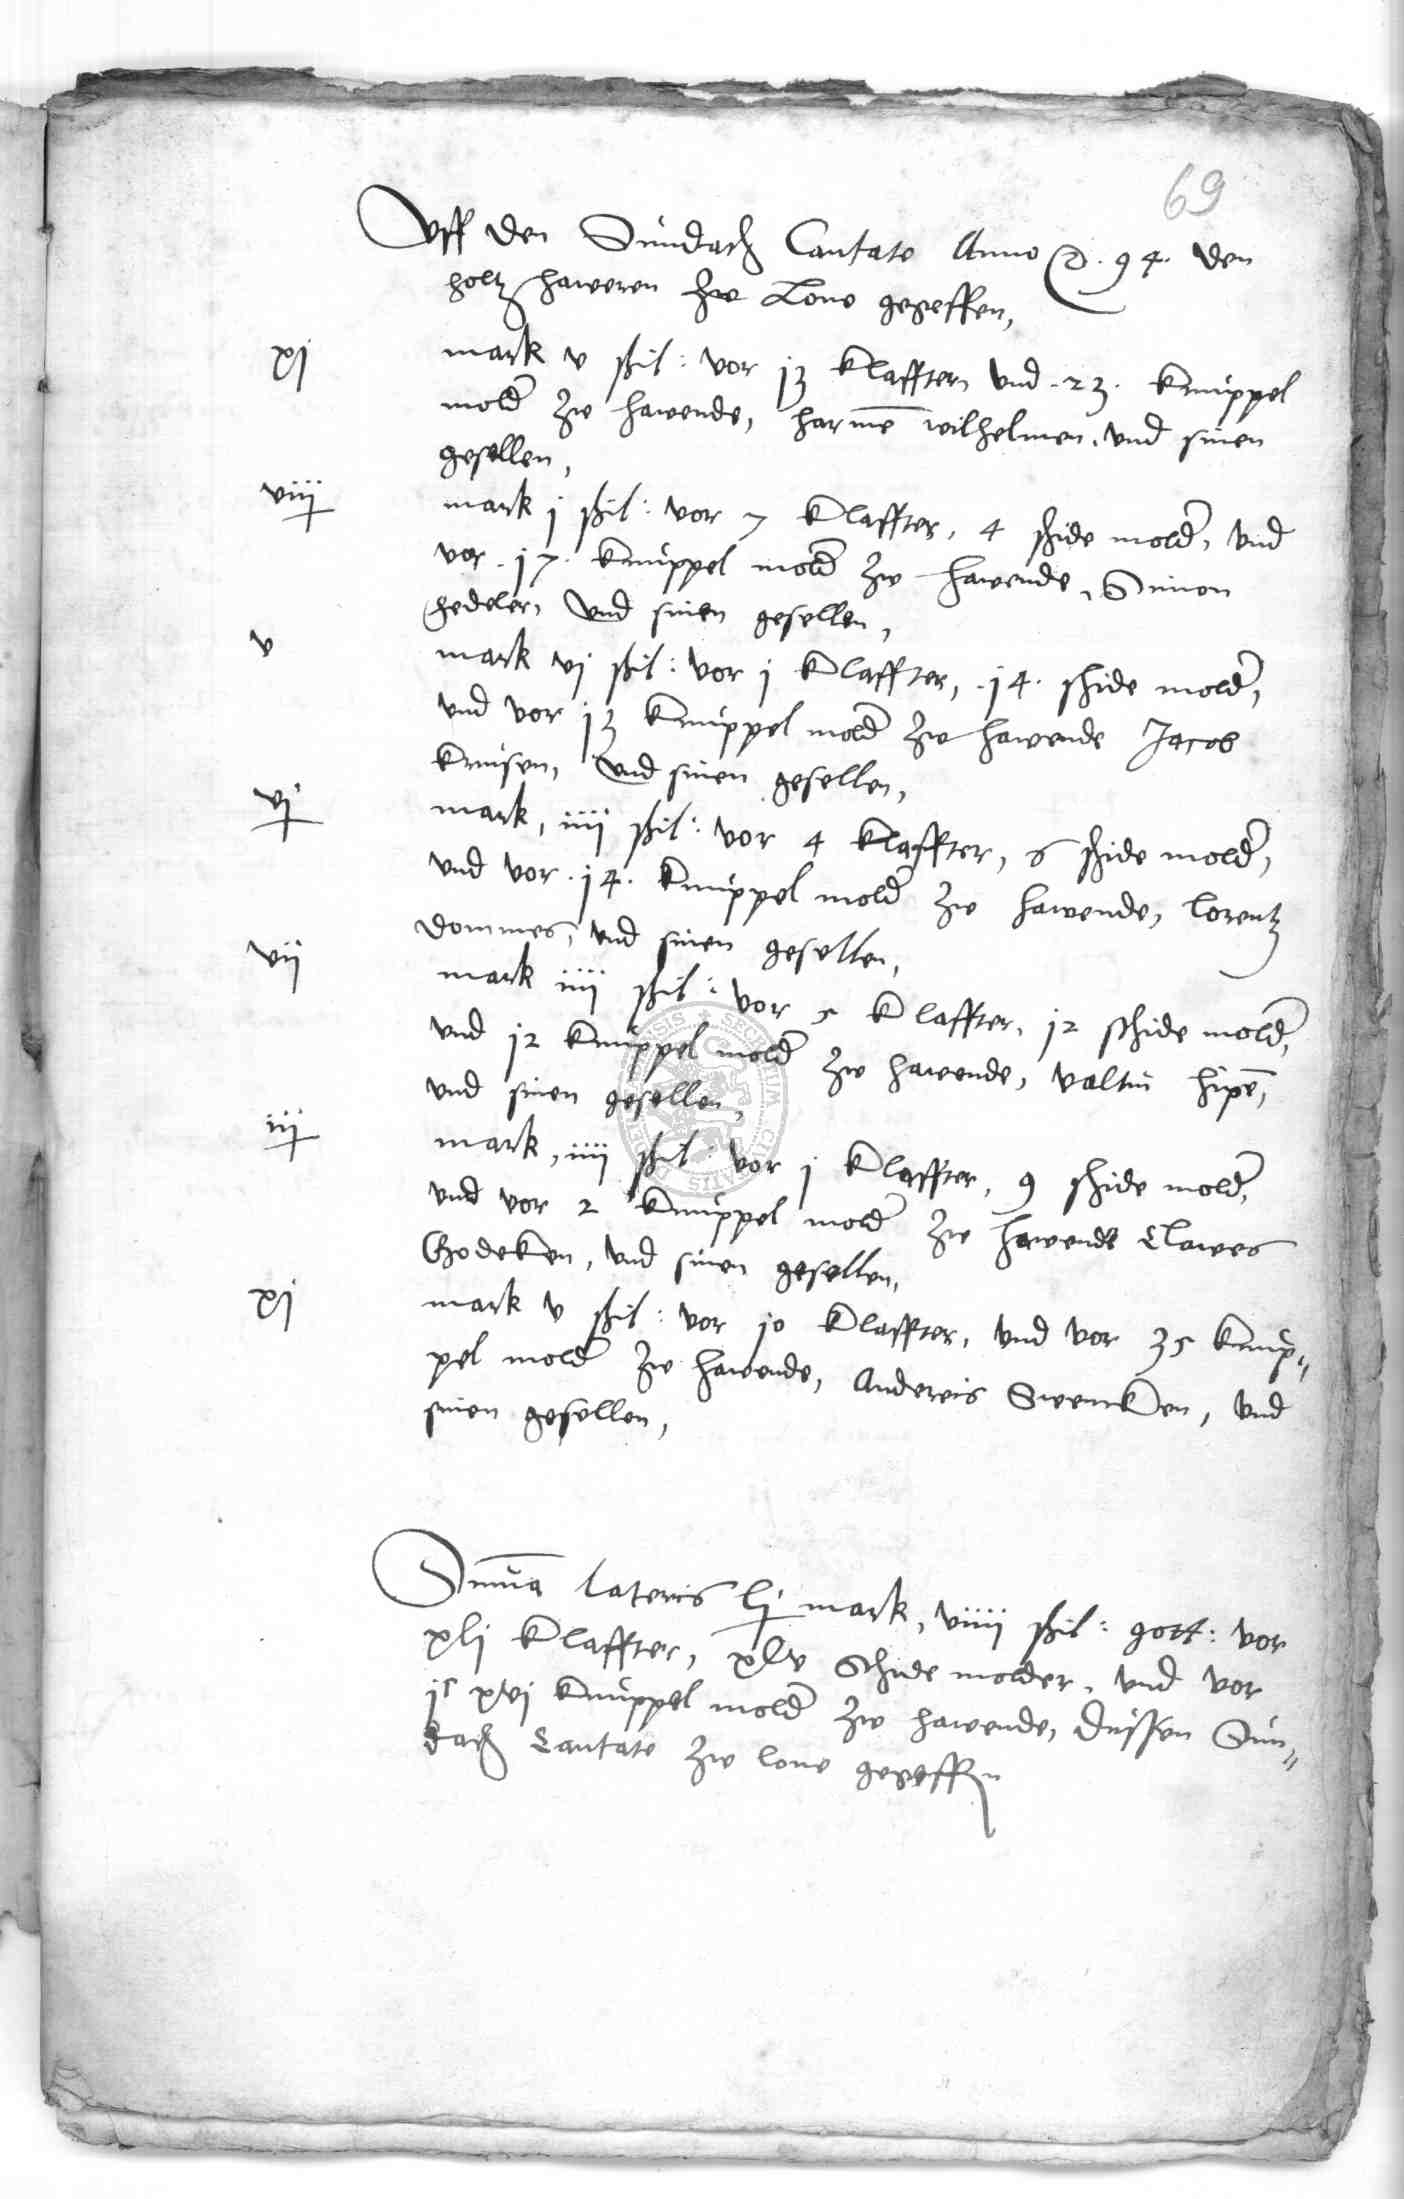 69
Vff den Sundach Cantate Anno D. 94. den
holtz haweren zw Lone gegeffen,
xj mark v schil: vor 13 klaffter, vnd .23. knuppel
mold zw hawende, harme wilhelmen, vnd sinen
gesellen,
viij mark j schil: vor 7 klaffter, 4 schide mold, vnd
vor .17. knuppel mold zw hawende, Simon
hedeler, vnd sinen gesellen,
v mark vj schil: vor j klaffter, .14. schide mold,
vnd vor 13 knuppel mold zw hawende Jacob
krusen, vnd sinen gesellen,
vj mark, iiij schil: vor 4 klaffter, 6 schide mold,
vnd vor .14. knuppel mold zw hawende, lorentz
dommes, vnd sinen gesellen,
vij mark iiij schil: vor 5 klaffter, 12 schide mold,
vnd 12 knuppel mold zw hawende, valtin hipe,
vnd sinen gesellen,
iij mark, iiij schil: vor j klaffter, 9 schide mold,
vnd vor 2 knuppel mold zw hawende Clawes
Godeken, vnd sinen gesellen,
xj mark v schil: vor 10 klaffter, vnd vor 35 knup-
pel mold zw hawende, Andereis Swencken, vnd
sinen gesellen,
Suma lateris lj mark, viiij schil: gott: vor
xlj klaffter, xlv Schide molder, vnd vor
jc xvj knuppel mold zw hawende, dussen Sun-
dach Cantate zw lone gegeffen